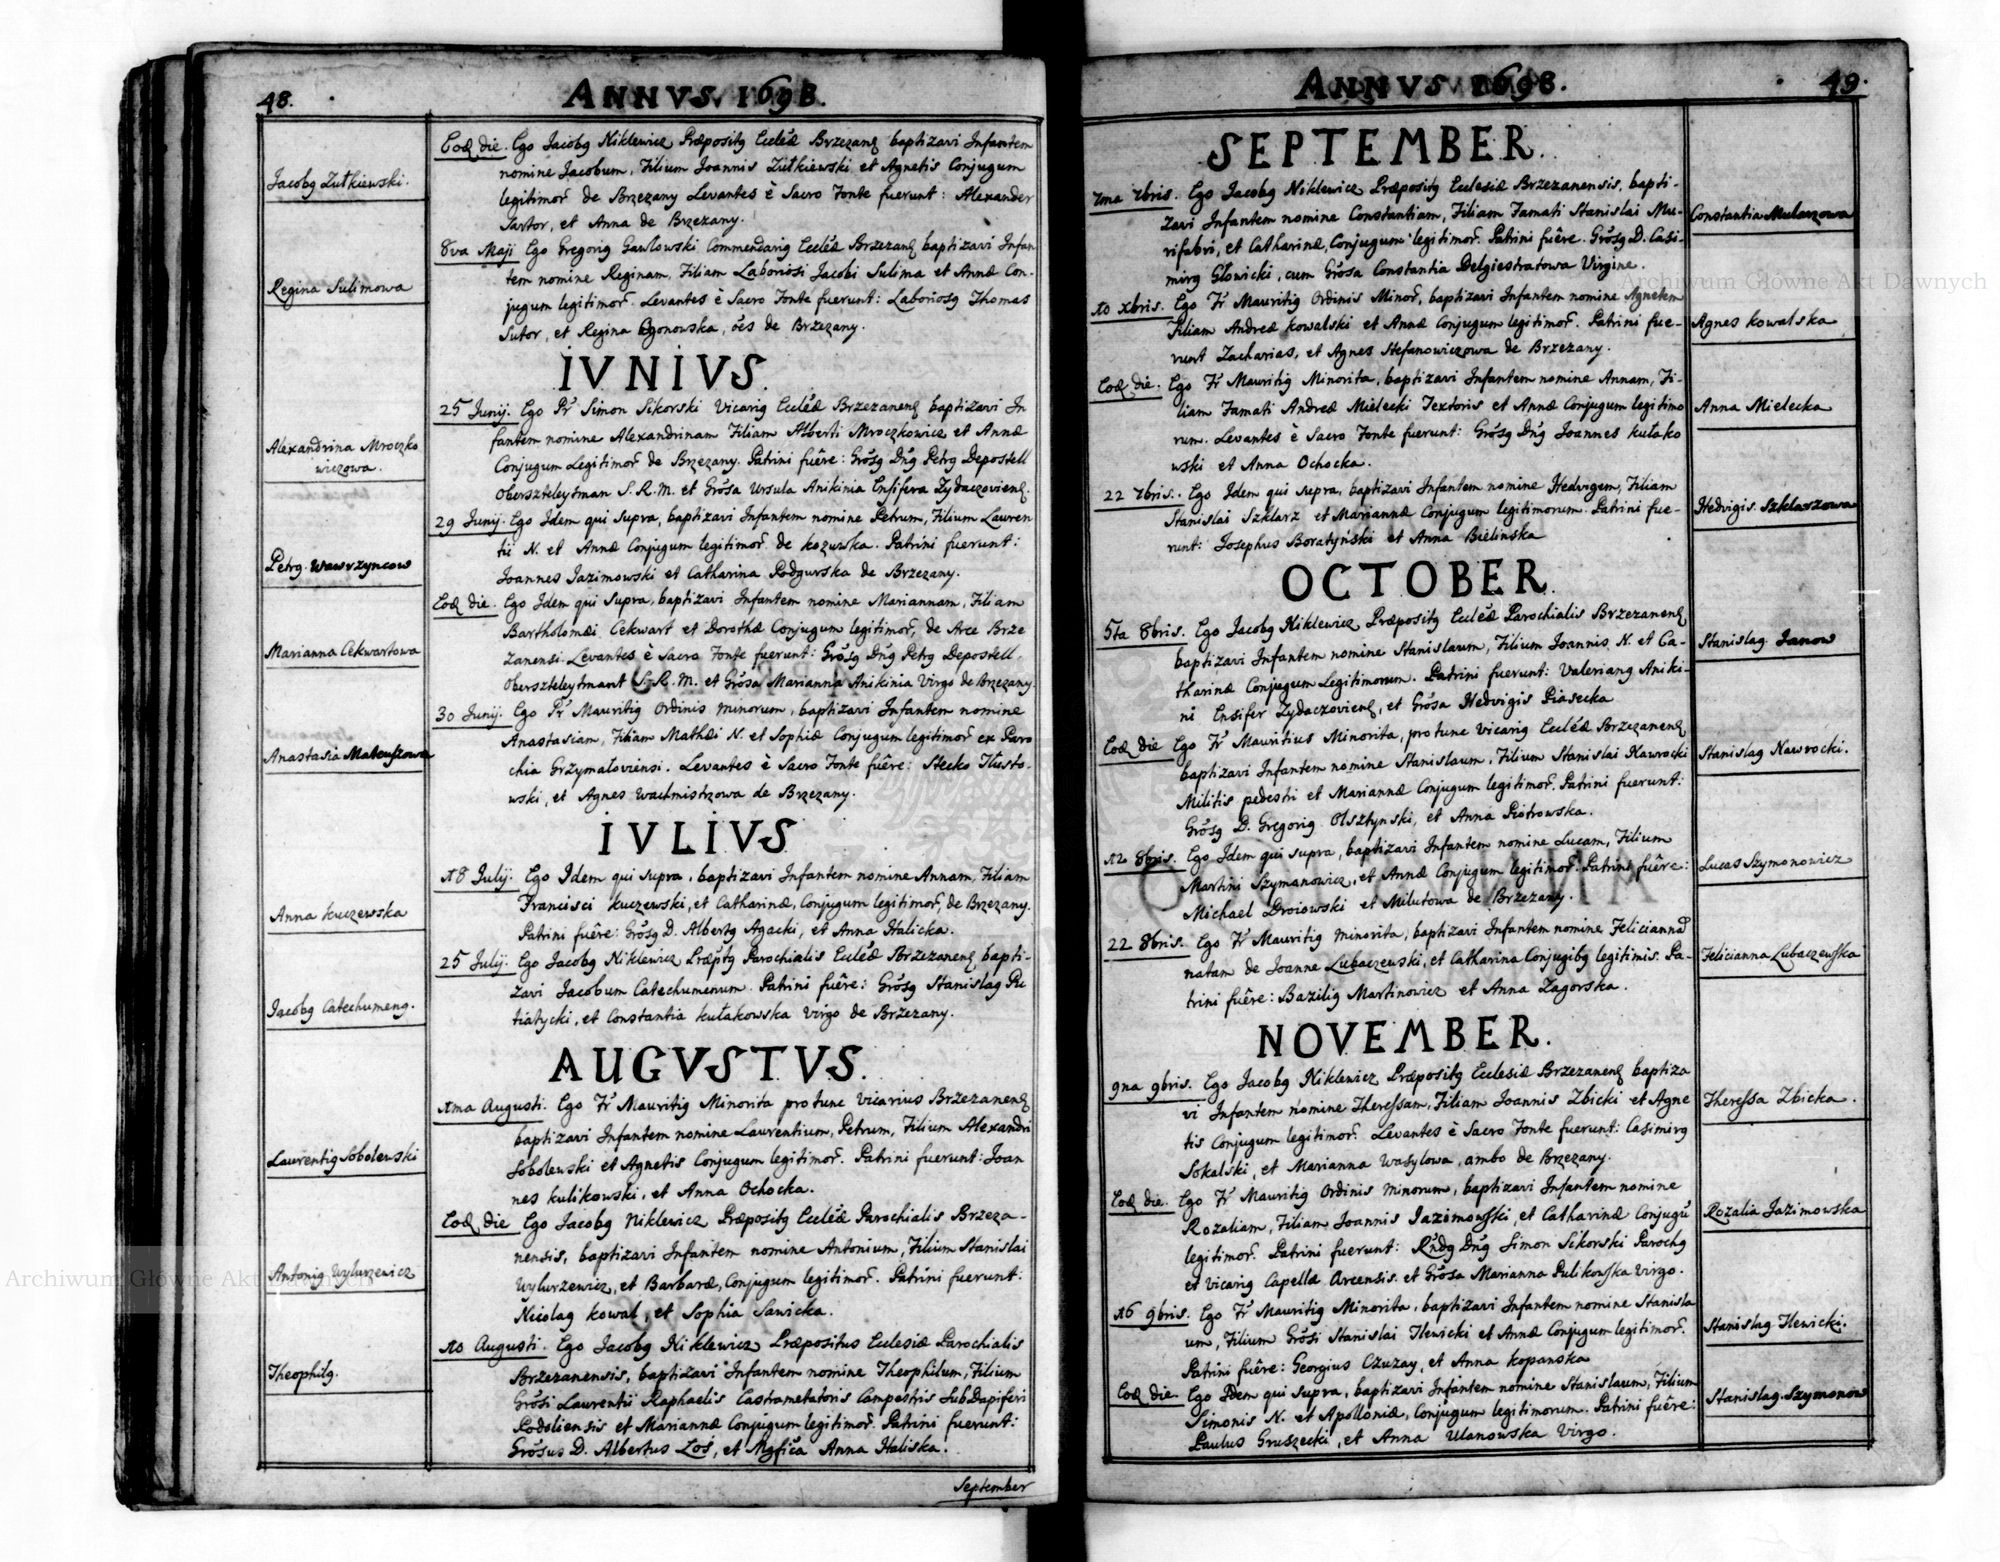 48.
ANNVS 1698.
Jacobg Zutkiewski.
Eod die. Ego Jacobg Niklewicz Præpositg Ecclẽæ Brzezanen baptizavi Infantem
nomine Jacobum, Filium Joannis Zutkiewski et Agnetis Conjugum
legitimor de Brzezany Levantes è Sacro Fonte fuerunt: Alexander
Sartor, et Anna de Brzezany.
Regina Sulimowa
8va Maji Ego Gregorig Gawlowski Commendarig Ecclẽæ Brzezanen baptizavi Infan
tem nomine Reginam, Filiam Laboriosi Jacobi Sulima et Annæ Con-
jugum legitimor. Levantes è Sacro Fonte fuerunt: Laboriosg Thomas
Sutor, et Regina, ões de Brzezany.
IVNIVS.
Alexandrina Mroczko
wiczowa.
25 Junij. Ego Pr Simon Sikorski Vicarig Ecclẽæ Brzezanen baptizavi In
fantem nomine Alexandrinam Filiam Alberti Mroczkowicz et Annæ
Conjugum Legitimor de Brzezany. Patrini fuêre: Grõsg Dng Petrg Depostell
Oberszteleytman S.R.M. et Grõsa Ursula Anikinia Ensifera Zydaczovien.
Petrg Wawrzyncow
29 Junij. Ego Idem qui supra, baptizavi Infantem nomine Petrum, Filium Lauren
tii N. et Annæ Conjugum legitimor de kozuwka. Patrini fuerunt:
Joannes Jazimowski et Catharina Podgurska de Brzezany.
Marianna Cekwartowa
Eod die. Ego Idem qui Supra, baptizavi Infantem nomine Mariannam, Filiam
Bartholomæi Cekwart et Dorothæ Conjugum legitimor, de Arce Brze
zanensi Levantes è Sacro Fonte fuerunt: Grõsg Dng Petrg Depostell
Oberszteleytmant S.R.M. et Grõsa Marianna Anikinia Virgo de Brzezany
Anastasia Mateuszowa
30 Junij. Ego Pr Mauritig Ordinis minorum, baptizavi Infantem nomine
Anastasiam, Filiam Mathæi N. et Sophiæ Conjugum legitimor ex Paro
chia Grzymałoviensi. Levantes è Sacro Fonte fuêre: Stecko
wski, et Agnes Wachmistrzowa de Brzezany.
IVLIVS
Anna kuczewska
18 Julij. Ego Idem qui supra, baptizavi Infantem nomine Annam, Filiam
Francisci kuczewski, et Catharinæ, Conjugum legitimor, de Brzezany.
Patrini fuêre: Grõsg D. Albertg Agacki, et Anna Halicka.
Jacobg Catechumeng.
25 Julij. Ego Jacobg Niklewicz Præptg Parochialis Ecclẽæ Brzezanen bapti-
zavi Jacobum Catechumenum. Patrini fuêre: Grõsg Stanislag Pu
tiatycki, et Constantia kułakowska Virgo de Brzezany.
AUGVSTVS.
Laurentig Sobolewski
1ma Augusti. Ego Fr Mauritig Minorita pro tunc Vicarius Brzezanen
baptizavi Infantem nomine Laurentium, Petrum, Filium Alexandri
Sobolewski et Agnetis Conjugum legitimor. Patrini fuerunt: Joan
nes kulikowski, et Anna Ochocka.
Antonig Wylurzewicz
Eod die Ego Jacobg Niklewicz Præpositg Ecclẽæ Parochialis Brzeza-
nensis, baptizavi Infantem nomine Antonium, Filium Stanislai
Wylurzewicz, et Barbaræ, Conjugum legitimor. Patrini fuerunt:
Nicolag kowal, et Sophia Sawicka.
Theophilg.
10 Augusti. Ego Jacobg Niklewicz Præpositus Ecclesiæ Parochialis
Brzezanensis, baptizavi Infantem nomine Theophilum, Filium
Grõsi Laurentii Raphaelis Castrametatoris Campestris SubDapiferi
Podoliensis et Mariannæ Conjugum legitimor. Patrini fuerunt:
Grõsus D. Albertus Łoś, et Mgfica Anna Haliska.
September
ANNVS 1698.
49.
SEPTEMBER.
7ma 7bris. Ego Jacobg Niklewicz Præpositg Ecclesiæ Brzezanensis, bapti-
zavi Infantem nomine Constantiam, Filiam Famati Stanislai Mu-
rifabri, et Catharinæ, Conjugum legitimor. Patrini fuêre. Grõsg D. Casi-
mirg Głowicki, cum Grõsa Constantia Delgiestratowa Virgine.
Constantia Mularzowa
10 xbris. Ego Fr Mauritig Ordinis Minor, baptizavi Infantem nomine Agnetem
Filiam Andreæ kowalski et Annæ Conjugum legitimor. Patrini fue-
runt Zacharias, et Agnes Stefanowiczowa de Brzezany.
Agnes kowalska
Eod die. Ego Fr Mauritig Minorita, baptizavi Infantem nomine Annam, Fi-
liam Famati Andreæ Mielecki Textoris et Annæ Conjugum legitimo
rum. Levantes è Sacro Fonte fuerunt: Grõsg Dng Joannes kułako
wski et Anna Ochocka.
Anna Mielecka
22 7bris. Ego Idem qui supra, baptizavi Infantem nomine Hedvigem, Filiam
Stanislai Szklarz et Mariannæ Conjugum legitimorum. Patrini fue-
runt: Josephus Boratyński et Anna Bielinska
Hedvigis Szklarzowa
OCTOBER.
5ta 8bris. Ego Jacobg Niklewicz Præpositg Ecclẽæ Parochialis Brzezanen
baptizavi Infantem nomine Stanislaum, Filium Joannis N. et Ca-
tharinæ Conjugum Legitimorum. Patrini fuerunt: Valeriang Aniki-
ni Ensifer Zydaczovien, et Grõsa Hedvigis Piasecka
Stanislag Janow
Eod die Ego Fr Mauritius Minorita, pro tunc Vicarig Ecclẽæ Brzezanen
baptizavi Infantem nomine Stanislaum, Filium Stanislai Nawrocki
Militis pedestri et Mariannæ Conjugum legitimor. Patrini fuerunt:
Grõsg D. Gregorig Olsztynski, et Anna Piotrowska.
Stanislag Nawrocki.
12 8bris. Ego Idem qui supra, baptizavi Infantem nomine Lucam, Filium
Martini Szymanowicz, et Annæ Conjugum legitimor. Patrini fuêre:
Michael Droiowski et Milutowa de Brzezany.
Lucas Szymonowicz
22 8bris. Ego Fr Mauritig Minorita, baptizavi Infantem nomine Feliciannã
natam de Joanne Lubaczewski, et Catharina Conjugibg legitimis. Pa-
trini fuêre: Bazilig Martinowicz et Anna Zagorska.
Felicianna Lubaczewska
NOVEMBER.
9na 9bris. Ego Jacobg Niklewicz Præpositg Ecclesiæ Brzezanen baptiza
vi Infantem nomine Theressam, Filiam Joannis Zbicki et Agne
tis Conjugum legitimor. Levantes è Sacro Fonte fuerunt: Casimirg
Sokalski, et Marianna Wasylowa, ambo de Brzezany.
Theressa Zbicka.
Eod die. Ego Fr Mauritig Ordinis minorum, baptizavi Infantem nomine
Rozaliam, Filiam Joannis Jazimowski, et Catharinæ Conjugũ
legitimor. Patrini fuerunt: Rndg Dng Simon Sikorski Parochg
et Vicarig Capellæ Arcensis. et Grõsa Marianna Pulikowska Virgo.
Rozalia Jazimowska
16 9bris. Ego Fr Mauritig Minorita, baptizavi Infantem nomine Stanisla
um, Filium Grõsi Stanislai Ilewicki et Annæ Conjugum legitimor.
Patrini fuêre: Georgius Czuzay, et Anna kopanska
Stanislag Ilewicki.
Eod die. Ego Idem qui supra, baptizavi Infantem nomine Stanislaum, Filium
Simonis N. et Apolloniæ, Conjugum legitimorum. Patrini fuêre:
Paulus Gruszecki, et Anna Ulanowska Virgo.
Stanislag Szymonow
Archiwum Główne Akt Dawnych
Archiwum Główne Akt Dawnych